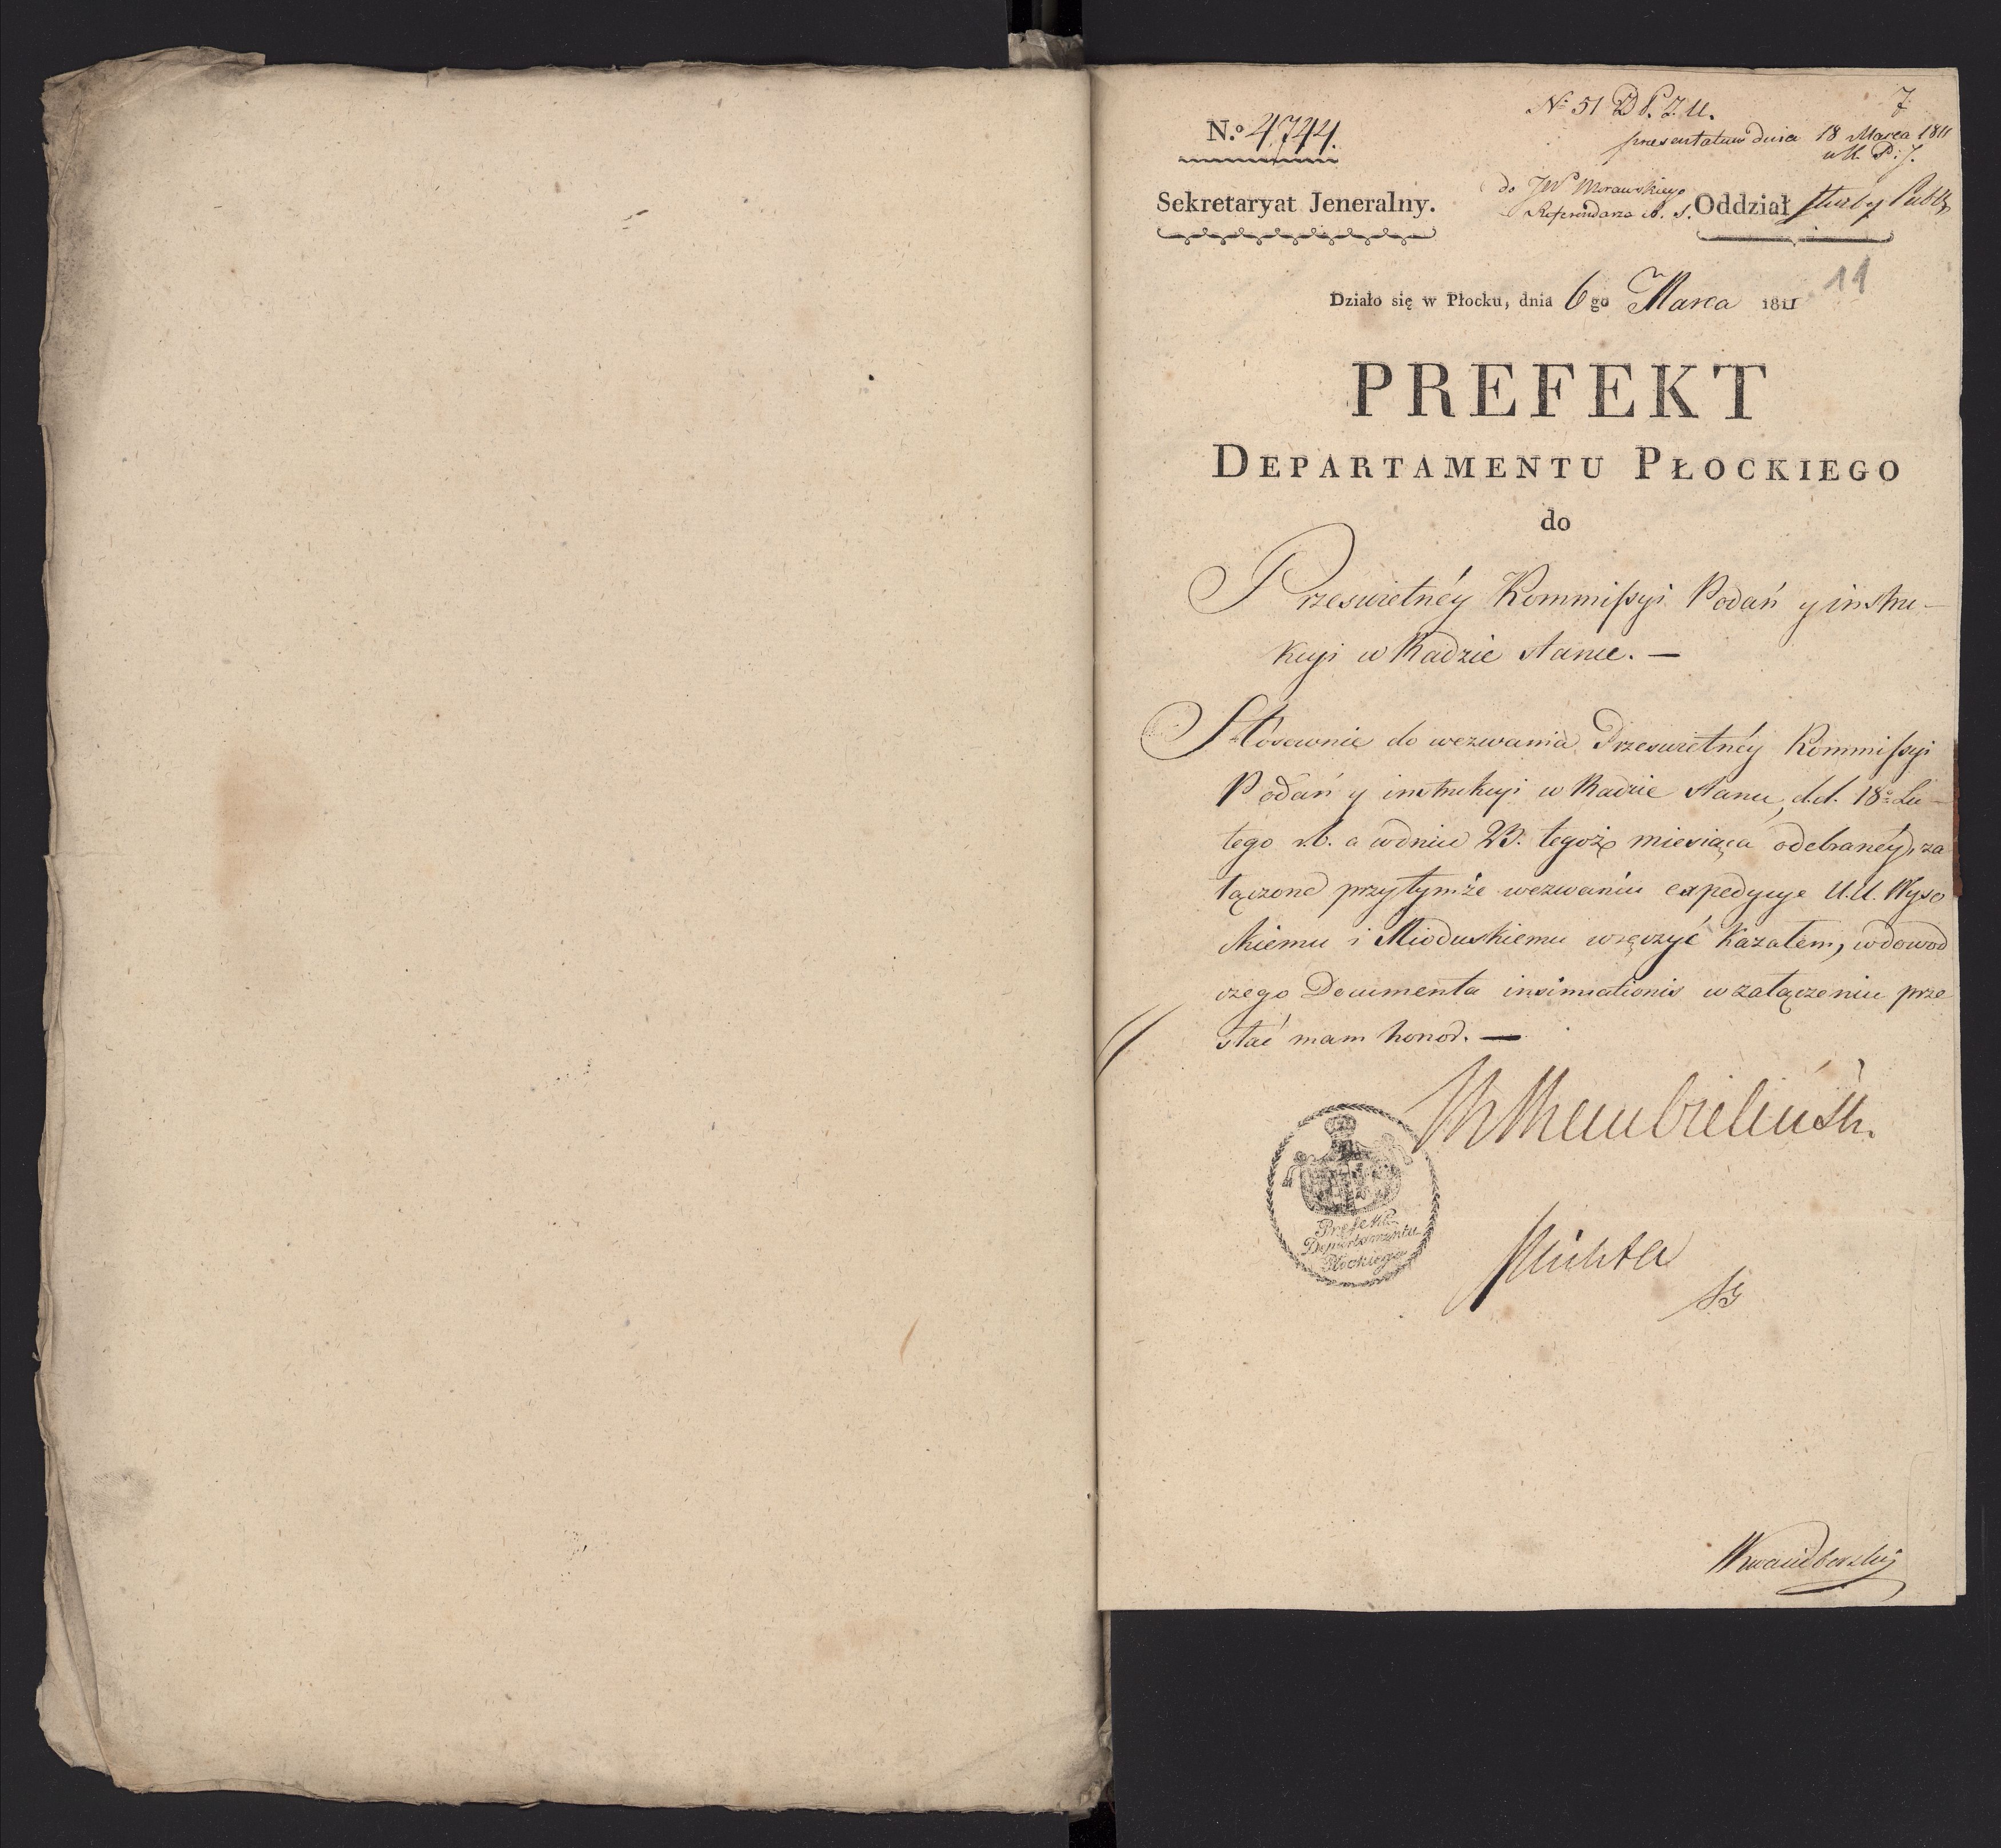 N.º 4744.
Nº 51 D P. J. U.
7
presentatum dnia 18 Marca 1811
w K. P. J.
Sekretaryat Jeneralny.
do JW Morawskiego
Referendarza R. S.
Oddział służby Publ:
11
Działo się w Płocku, dnia 6 go Marca 1811
PREFEKT
DEPARTAMENTU PŁOCKIEGO
do
Przeswietnéy Kommissyi Podań y instru-
kcyi w Radzie stanu. —
Stosownie do wezwania Przeswietnéy Kommissyi
Podań y instrukcyi w Radzie stanu, d.d. 18º Lu-
tego r.b. a w dniu 23. tegoż miesiąca odebranéy, za
łączone przytymże wezwaniu expedycye U.U. Wyso
kiemu i Mioduskiemu wręczyć kazałem, w dowod
czego Documenta insinuationis w załączeniu prze
słać mam honor. —
Rembieliński.
Prefekt
Departamentu
Płockiego
SG